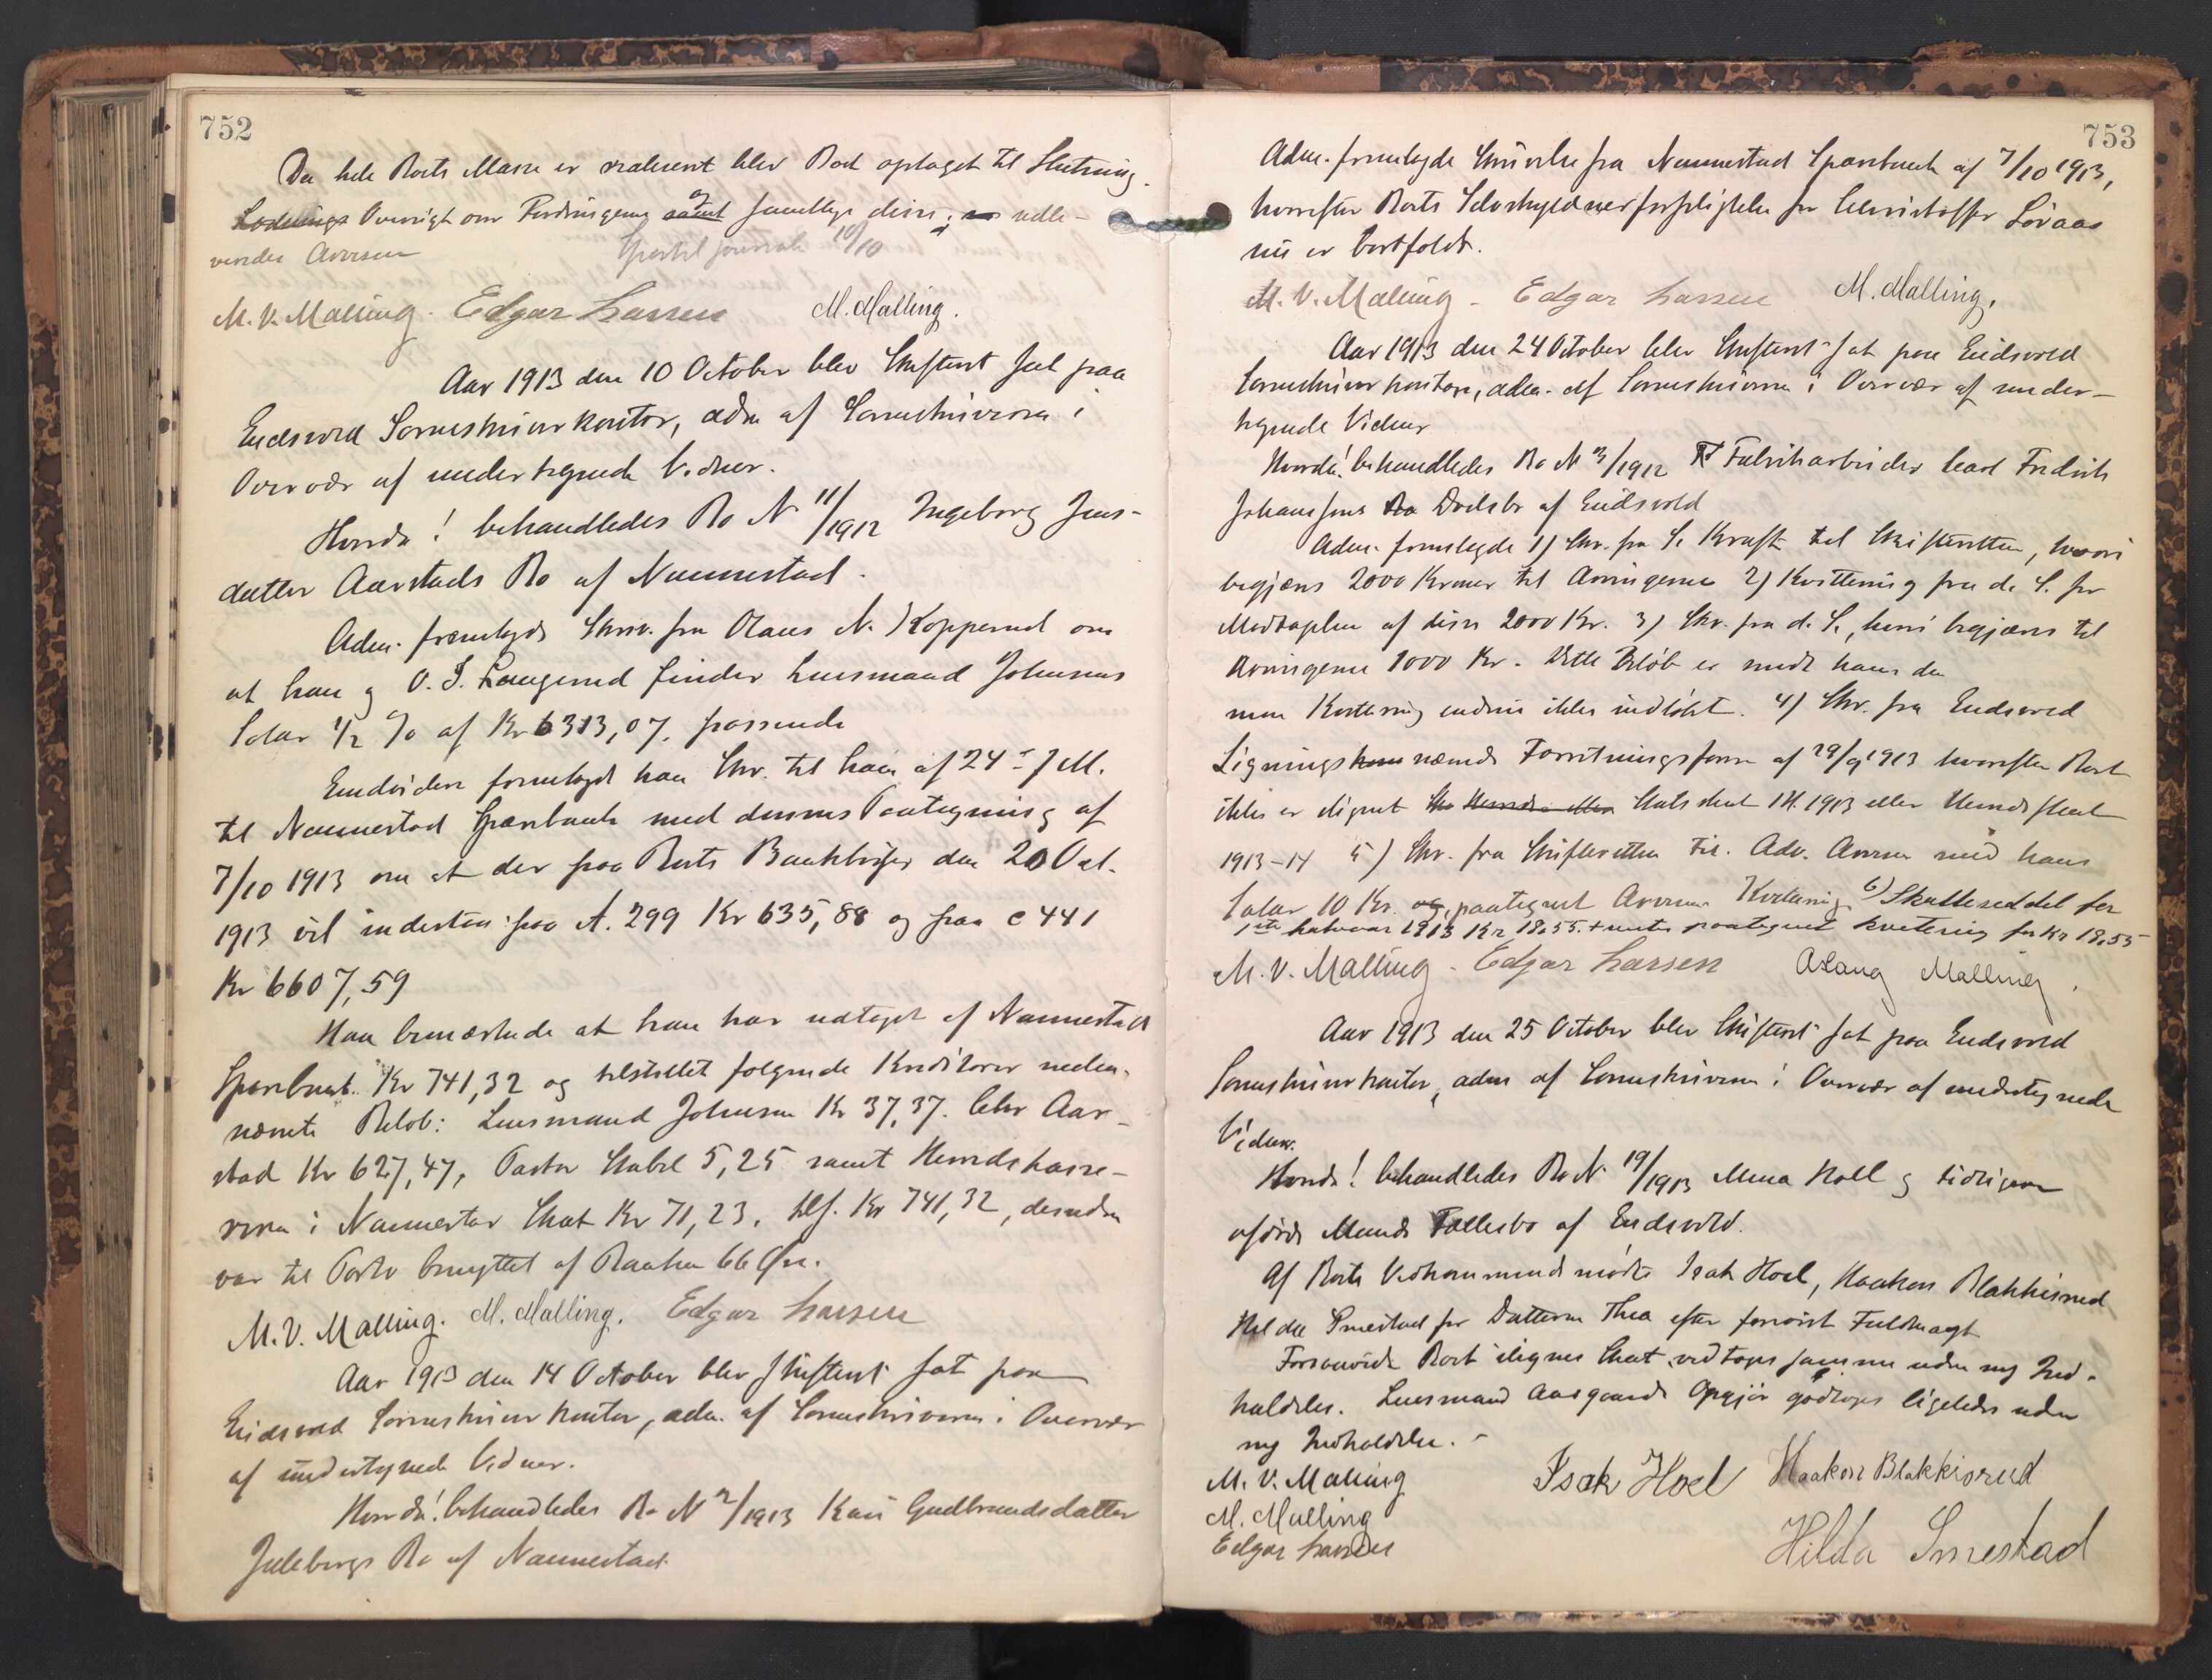 752
Da hele Boets Masse er realiseret blev Boet optaget til Slutning.
Lodnings Oversigt over Fordringerne samt og samtlige disse; udle-
verdes Aversen Sportel journale 10/10
M. V. Malling. Edgar Larsen M. Malling.
Aar 1913 den 10 October blev Skifteret sat paa
Eidsvold Sorenskriverkontor, adm af Sorenskriveren i
Overvær af undertegnede Vidner.
Hvorda! behandledes Bo N 11/1912 Ingeborg Jens-
datter Aarstads Bo af Nannestad.
Adm. fremlagde Skriv. fra Olaus N. Kopperud om
at han og O. J. Laugerud finder Lensmand Johnsens
Salær 1/2 % af Kr 6313,07, passende
Endvidere fremlagde han Skr. til ham af 24 - f M.
til Nannestad Sparebank med dennes Paategning af
7/10 1913 om at der paa Boets Bankbøger den 20 Oct.
1913 vil indestaa paa A. 299 Kr 635,88 og paa C 441
Kr 6607,59
Han bemærkede at han har udtaget af Nannestad
Sparebank Kr 741,32 og tilstillet følgende Kreditorer neden-
nævnte Beløb: Lensmand Johnsen Kr 37,37. Chr Aar-
stad Kr 627,47, Pastor Stabel 5,25 samt Herredskasse-
reren i Nannestad Skat Kr 71,23. tils. Kr 741,32, desuden
var til Porto benyttet af Banken 66 Øre.
M. V. Malling. M. Malling. Edgar Larsen
Aar 1913 den 14 October blev Skifteret sat paa
Eidsvold Sorenskriverkontor, adm. af Sorenskriveren i Overvær
af undertegnede Vidner.
Hvorda! behandledes Bo N 2/1913 Kari Gudbrandsdatter
Julebergs Bo af Nannestad.
753
Adm. fremlagde Skrivelse fra Nannestad Sparebank af 7/10 1913,
hvorefter Boets Selvskyldnerforpligtelse for Christoffer Løvaas
nu er bortfaldt.
M. V. Malling - Edgar Larsen M. Malling.
Aar 1913 den 24 October blev Skifteret sat paa Eidsvold
Sorenskriverkontor, adm. af Sorenskriveren i Overvær af under-
tegnede Vidner
Hvorda! behandledes Bo N 3/1912 Fabrikarbeider Carl Fredrik
Johansens Bo Dødsbo af Eidsvold
Adm. fremlagde 1) Skr. fra S. Kraft til Skifteretten, hvori
begjæres 2000 Kroner til Arvingerne 2) Kvittering fra d. S. for
Modtagelsen af disse 2000 Kr. 3) Skr. fra d. S., hvori begjæres til
Arvingerne 1000 Kr. Dette Beløb er sendt ham den
men Kvittering endnu ikke indløbet. 4) Skr. fra Eidsvold
Ligningskom nævnds Forretningsfører af 29/9 1913 hvorefter Boet
ikke er ilignet Herreds eller Statsskat 1H. 1913 eller Herredsskat
1913-14 5) Skr. fra Skifteretten til. Adv. Aversen med hans
Salær 10 Kr. og paategnet Aversens Kvittering. 6) Skatteseddel for
1ste halvaar 1913 Kr. 18.55. + paategnet kvitering for Kr 18.55
M. V. Malling - Edgar Larsen Aslaug Malling.
Aar 1913 den 25 October blev Skifteret sat paa Eidsvold
Sorenskriverkontor, adm af Sorenskriveren i Overvær af undertegnede
Vidner.
Hvorda! behandledes Bo N. 19/1913 Mina Hoel og tidligere
afdøde Mands Fællesbo af Eidsvold.
Af Boets Vedkommende mødte Isak Hoel, Haakon Blakkisrud
Hilda Smestad for Datteren Thea efter forevist Fuldmagt
Forsaavidt Boet ilignes Skat vedtages samme uden ny Ind-
kaldelse. Lensmand Aasgaards Opgjør godtages ligeledes uden
ny Indkaldelse. -
M. V. Malling Isak Hoel Haakon Blakkisrud
M. Malling
Edgar Larsen Hilda Smestad